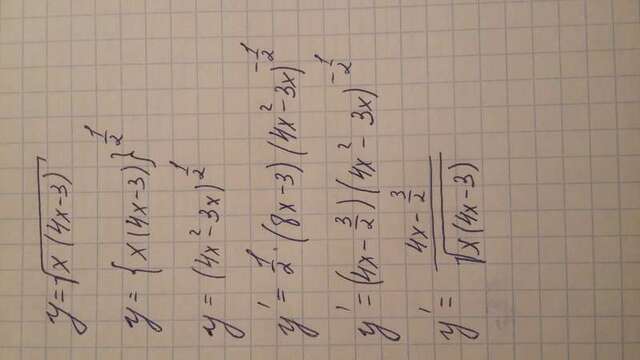 y = √(x(4x-3))
y = {x(4x-3)}^(1/2)
y = (4x²-3x)^(1/2)
y' = 1/2 · (8x-3)(4x²-3x)^(-1/2)
y' = (4x - 3/2)(4x² - 3x)^(-1/2)
y' = (4x - 3/2)/√(x(4x-3))